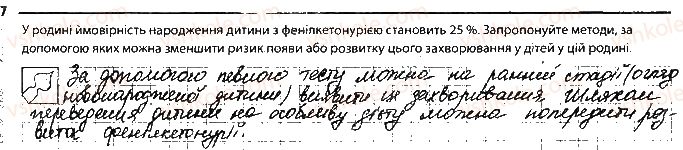 7
У родині ймовірність народження дитини з фенілкетонурією становить 25 %. Запропонуйте методи, за
допомогою яких можна зменшити ризик появи або розвитку цього захворювання у дітей у цій родині.
За допомогою певного тесту можна на ранній стадії (огляд
новонародженої дитини) виявити це захворювання. Шляхом
переведення дитини на особливу дієту можна попередити роз-
виток фенілкетонурії.